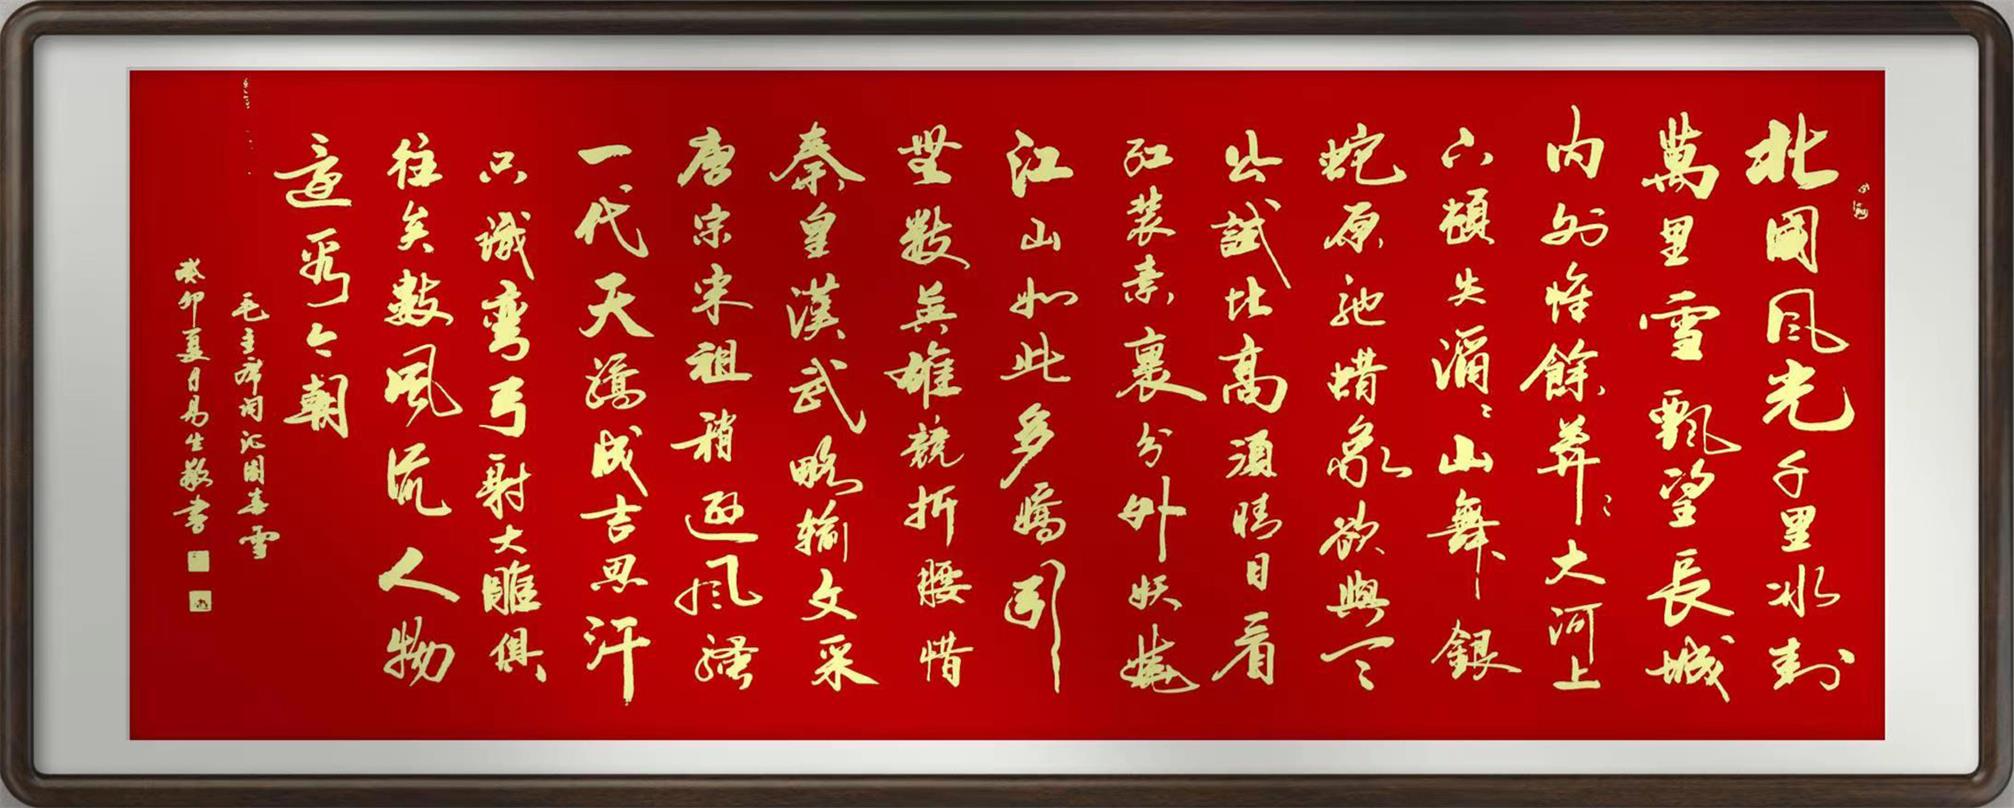 北國風光千里冰封
萬里雪飄望長城
內外惟餘莽〻大河上
下頓失滔〻山舞銀
蛇原馳蠟象欲與天
公試比高須晴日看
紅裝素裹分外妖嬈
江山如此多嬌引
無數英雄競折腰惜
秦皇漢武略輸文采
唐宗宋祖稍遜風騷
一代天驕成吉思汗
只識彎弓射大雕俱
往矣數風流人物
還看今朝
毛主席詞沁園春雪
癸卯夏月易生敬書